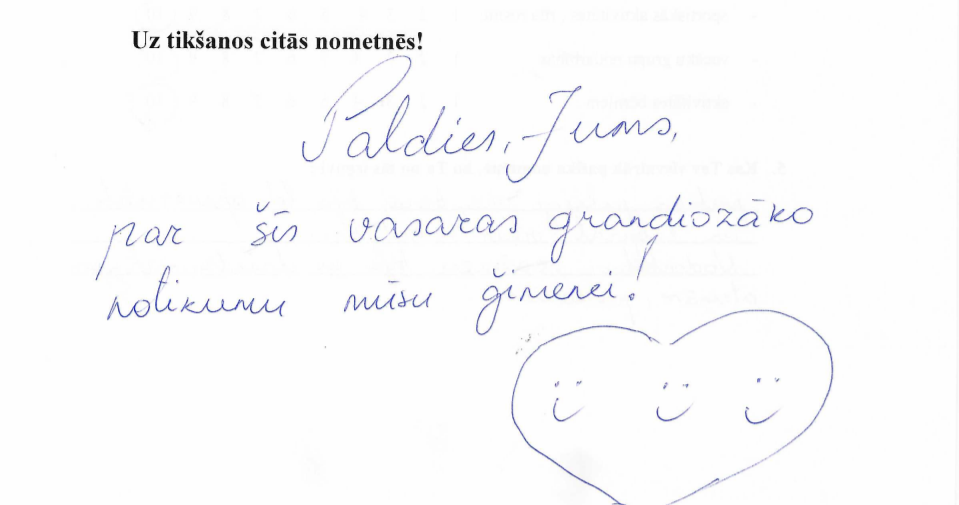 Uz tikšanos citās nometnēs!
Paldies, Jums,
par šīs vasaras grandiozāko
notikumu mūsu ģimenei!